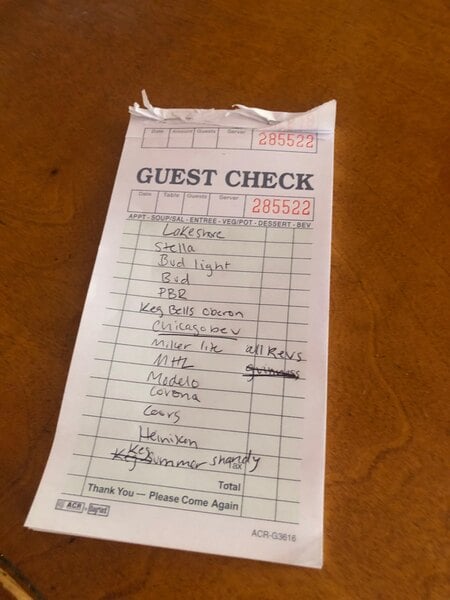 Date Amount Guests Server 285522
GUEST CHECK
Date Table Guests Server 285522
APPT - SOUP/SAL - ENTREE - VEG/POT - DESSERT - BEV
Lakeshore
Stella
Bud light
Bud
PBR
Keg Bells Oberon
Chicago bev
Miller lite all Revs
MHL guinness
Modelo
Corona
Coors
Heiniken
Keg
Keg Summer shandy
Tax
Total
Thank You — Please Come Again
ACR
ACR-G3616